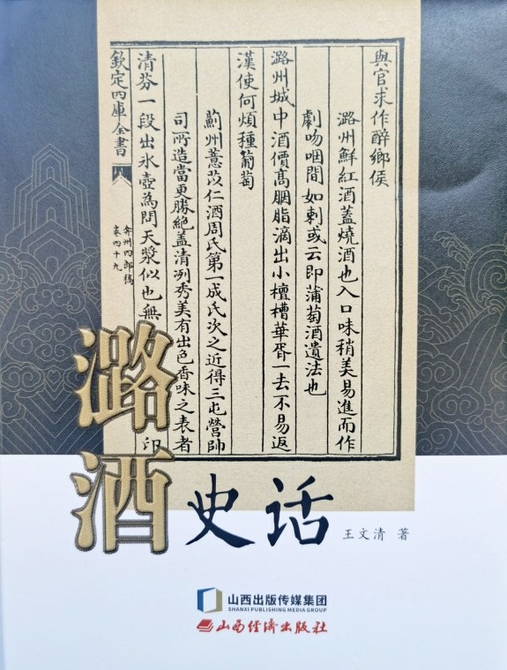 與官求作醉鄉侯
潞州鮮紅酒蓋燒酒也入口味稍美易進而作
劇吻咽間如刺或云即蒲萄酒遺法也
潞州城中酒價高胭脂滴出小檀槽華胥一去不易返
漢使何煩種葡萄
薊州薏苡仁酒周氏第一成氏次之近得三屯營帥
司所造當更勝絕蓋清冽秀美有出色香味之表者
清芬一段出氷壺為問天漿似也無
印
欽定四庫全書
弇州四部稿
卷四十九
潞酒
史话
王文清 著
山西出版传媒集团
SHANXI PUBLISHING MEDIA GROUP
山西经济出版社